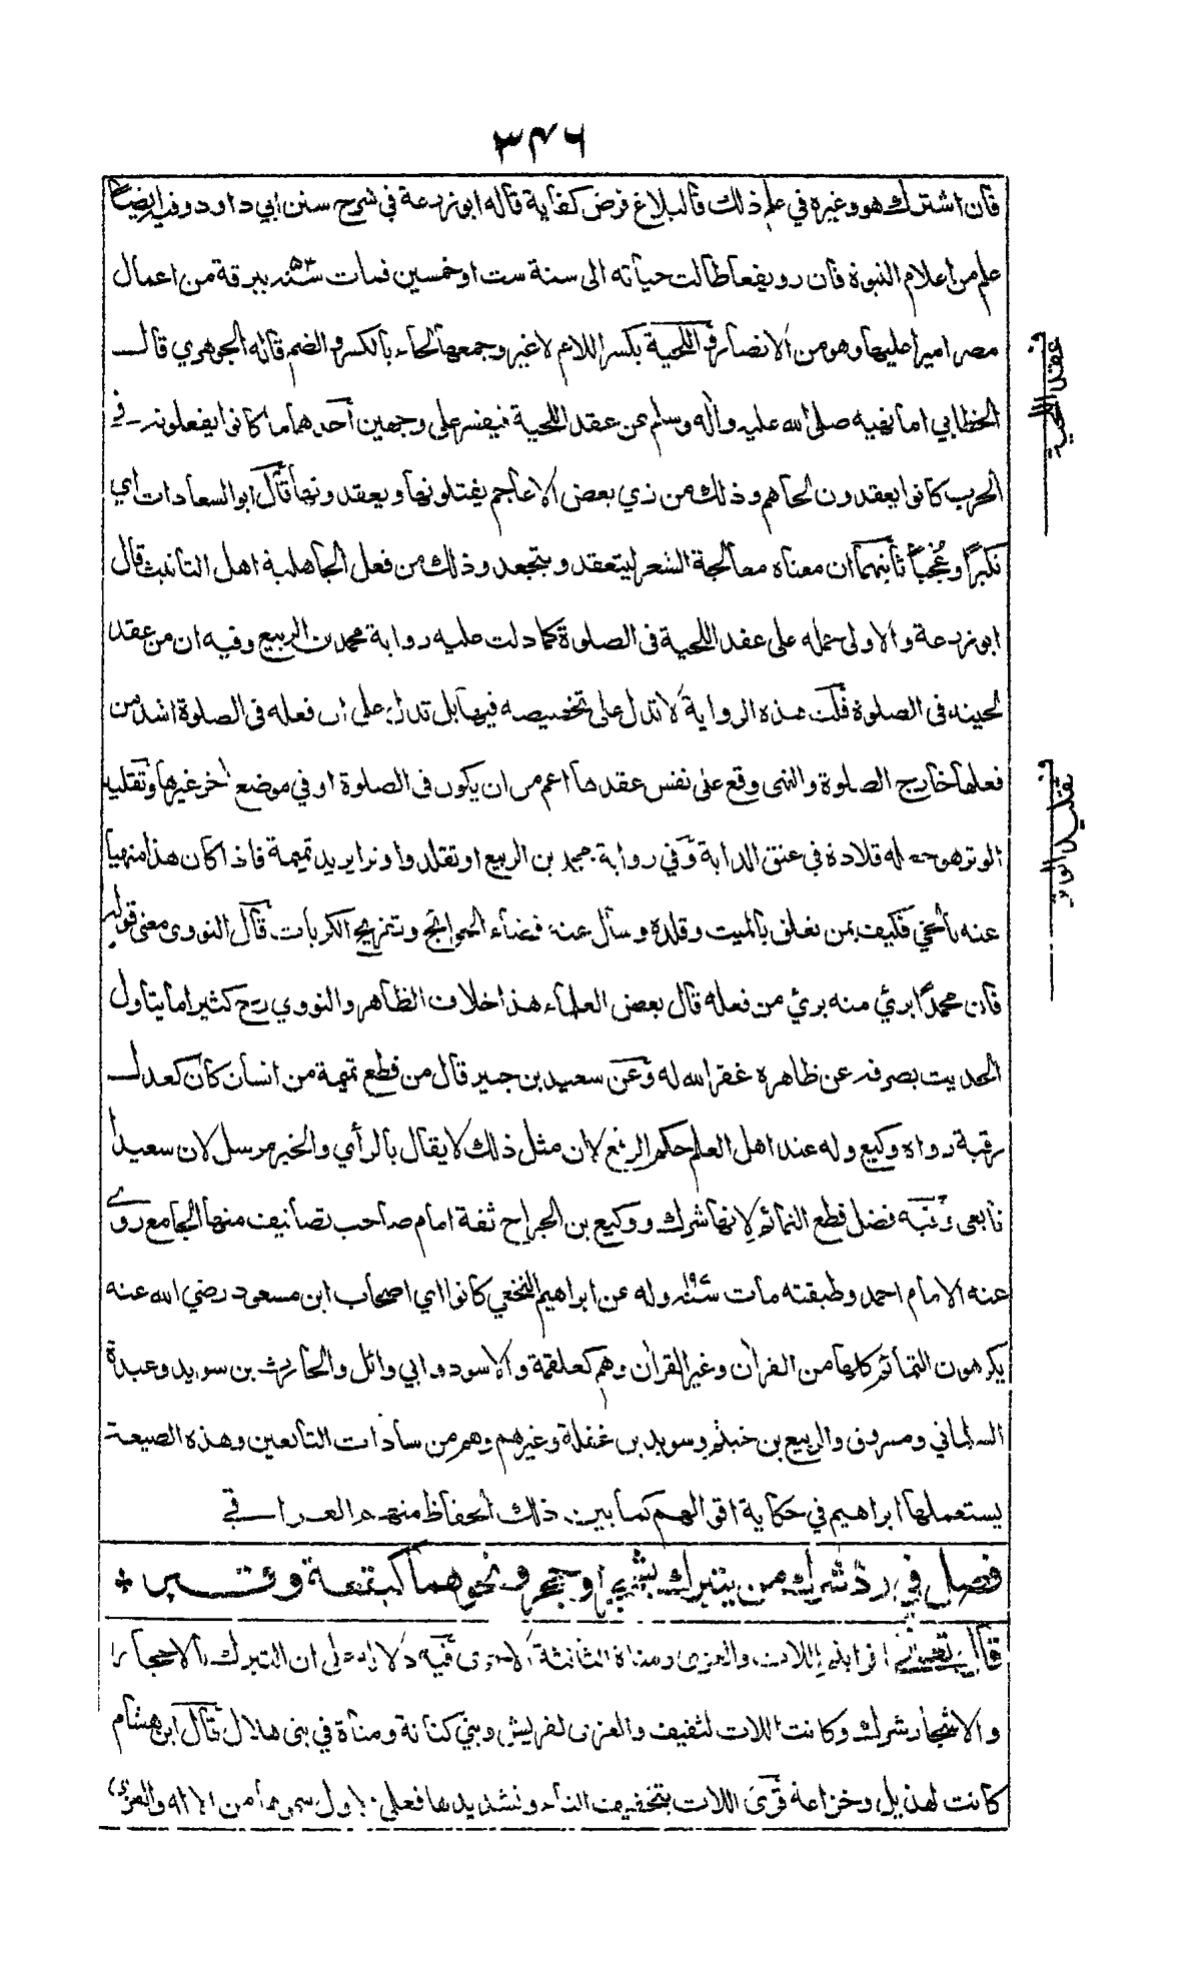 ٣٤٦
فان اشترك هو وغيره في علم ذلك فالبلاغ فرض كفاية قاله ابو زرعة في شرح سنن ابي داود وفيه ايضا
علم من اعلام النبوة فان رويفعا طالت حياته الى سنة ست او خمسين فمات سنة ٥٣ ببرقة من اعمال
مصر اميرا عليها وهو من الانصار واللحية بكسر اللام لا غير وجمعها لحاء بالكسر والضم قاله الجوهري قال
الخطابي اما نهيه صلى الله عليه واله وسلم عن عقد اللحية فيفسر على وجهين احدهما ما كانوا يفعلونه في
الحرب كانوا يعقدون لحاهم وذلك من زي بعض الاعاجم يفتلونها ويعقدونها قال ابو السعادات اي
تكبرًا وعُجبًا ثانيهما ان معناه معالجة الشعر ليتعقد ويتجعد وذلك من فعل الجاهلية اهل التانيث قال
ابو زرعة والاولى حمله على عقد اللحية فى الصلوة كما دلت عليه رواية محمد بن الربيع وفيه ان من عقد
لحيته فى الصلوة قلت هذه الرواية لا تدل على تخصيصه فيها بل تدل على ان فعله فى الصلوة اشد من
فعلها خارج الصلوة والنهى وقع على نفس عقدها اعم من ان يكون فى الصلوة او في موضع اخر غيرها وتقليد
الوتر هو جعله قلادة في عنق الدابة وفي رواية محمد بن الربيع او تقلد واوترا يريد تميمة فاذا كان هذا منهيا
عنه فكيف بمن تعلق بالميت وقلده وسأل عنه قضاء الحوائج وتفريج الكربات قال النووى معنى قوله
فان محمدًا برئ منه برئ من فعله قال بعض العلماء هذا خلاف الظاهر والنووي رح كثيرا ما يتاول
الحديث بصرفه عن ظاهره غفر الله له وعن سعيد بن جبير قال من قطع تميمة من انسان كان كعدل
رقبة رواه وكيع وله عند اهل العلم حكم الرفع لان مثل ذلك لا يقال بالرأي والخبر مرسل لان سعيدا
تابعى وفيه فضل قطع التمائم لانها شرك ووكيع بن الجراح ثقة امام صاحب تصانيف منها الجامع روى
عنه الامام احمد وطبقته مات سنة ١٩٧ وله عن ابراهيم النخعي كانوا اي اصحاب ابن مسعود رضي الله عنه
يكرهون التمائم كلها من القران وغير القران وهم كعلقمة والاسود وابي وائل والحارث بن سويد وعبدة
السلماني ومسروق والربيع بن خيثم وسويد بن غفلة وغيرهم وهم من سادات التابعين وهذه الصيغة
يستعملها ابراهيم في حكاية اقوالهم كما بين ذلك الحفاظ منهم العراقي
فصل في رد شرك من يتبرك بشجر او حجر ونحوهما كبقعة وقبر
قال تعالى افرايتم اللات والعزى ومناة الثالثة الاخرى فيه دلالة على ان التبرك بالاحجار
والاشجار شرك وكانت اللات لثقيف والعزى لقريش وبني كنانة ومناة في بنى هلال قال ابن هشام
كانت لهذيل وخزاعة قرئ اللات بتخفيف التاء وتشديدها فعلى الاول سموها من الاله والعزى
عقد اللحية
تقليد الوتر